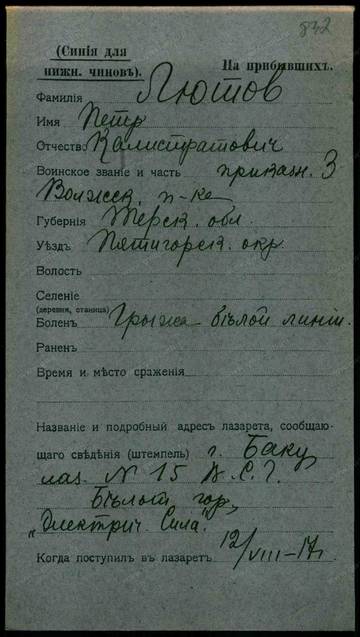 832
(Синія для
нижн. чиновъ).
На прибывшихъ.
Фамилія Лютов
Имя Петр
Отчество Калистратович
Воинское званіе и часть приказн. 3
Волжск. п-ка
Губернія Терск. обл.
Уѣздъ Пятигорск. окр.
Волость
Селеніе
(деревня, станица)
Боленъ Грыжа бѣлой линіи.
Раненъ
Время и мѣсто сраженія
Названіе и подробный адресъ лазарета, сообщаю-
щаго свѣдѣнія (штемпель) г. Баку
лаз. N 15 В. С. Г.
Бѣлый гор.
„Электрич. Сила".
Когда поступилъ въ лазаретъ 12/VIII-17 г.